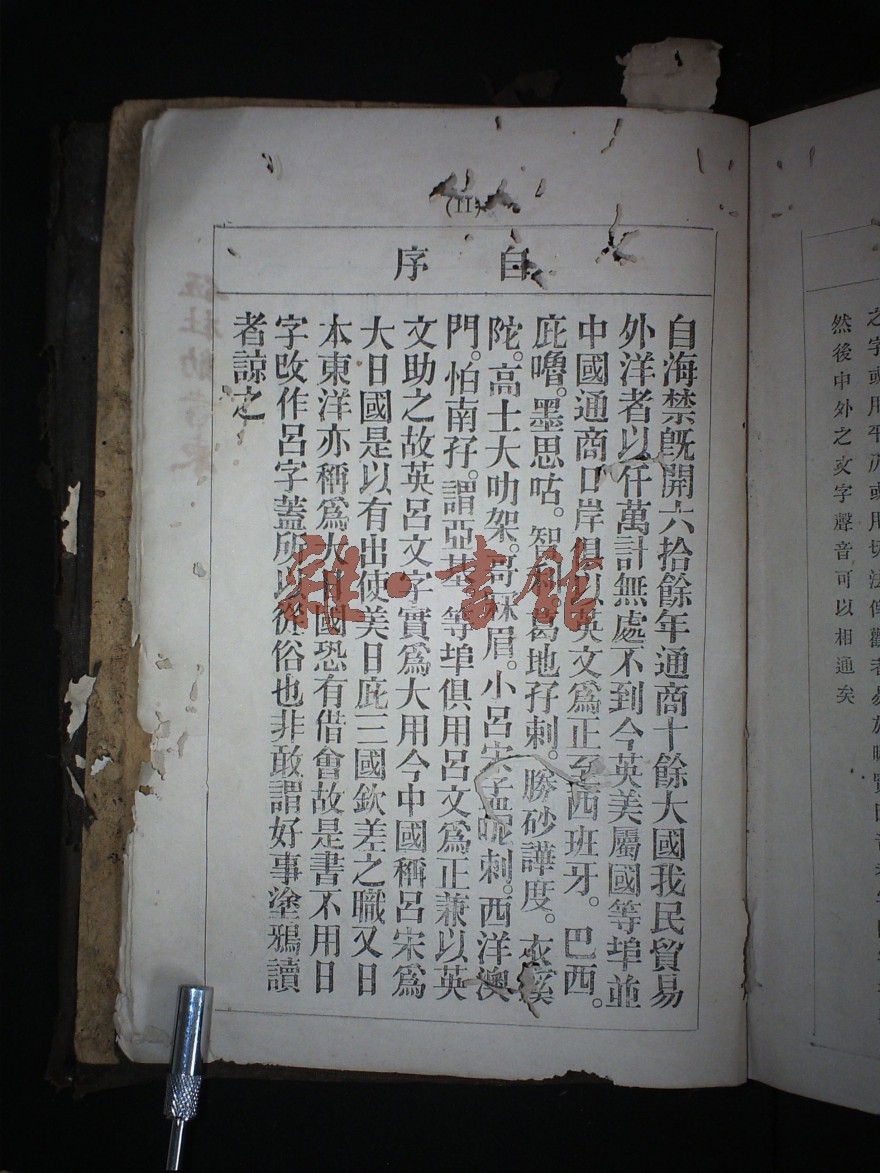 (II)
自序
自海禁旣開六拾餘年通商十餘大國我民貿易
外洋者以仟萬計無處不到今英美屬國等埠並
中國通商口岸俱以英文爲正至西班牙。巴西。
庇嚕。墨思咕。智利 葛地孖剌。勝砂譁度。衣
陀。高士大叻架。哥 眉。小呂宋孟呢剌。西洋澳
門。怕南孖。謂亞基 等埠俱用呂文爲正兼以英
文助之故英呂文字實爲大用今中國稱呂宋爲
大日國是以有出使美日庇三國欽差之職又日
本東洋亦稱爲大日國恐有借會故是書不用日
字改作呂字蓋所以從俗也非敢謂好事塗鴉讀
者諒之
雜·書館
然後中外之文字聲音可以相通矣